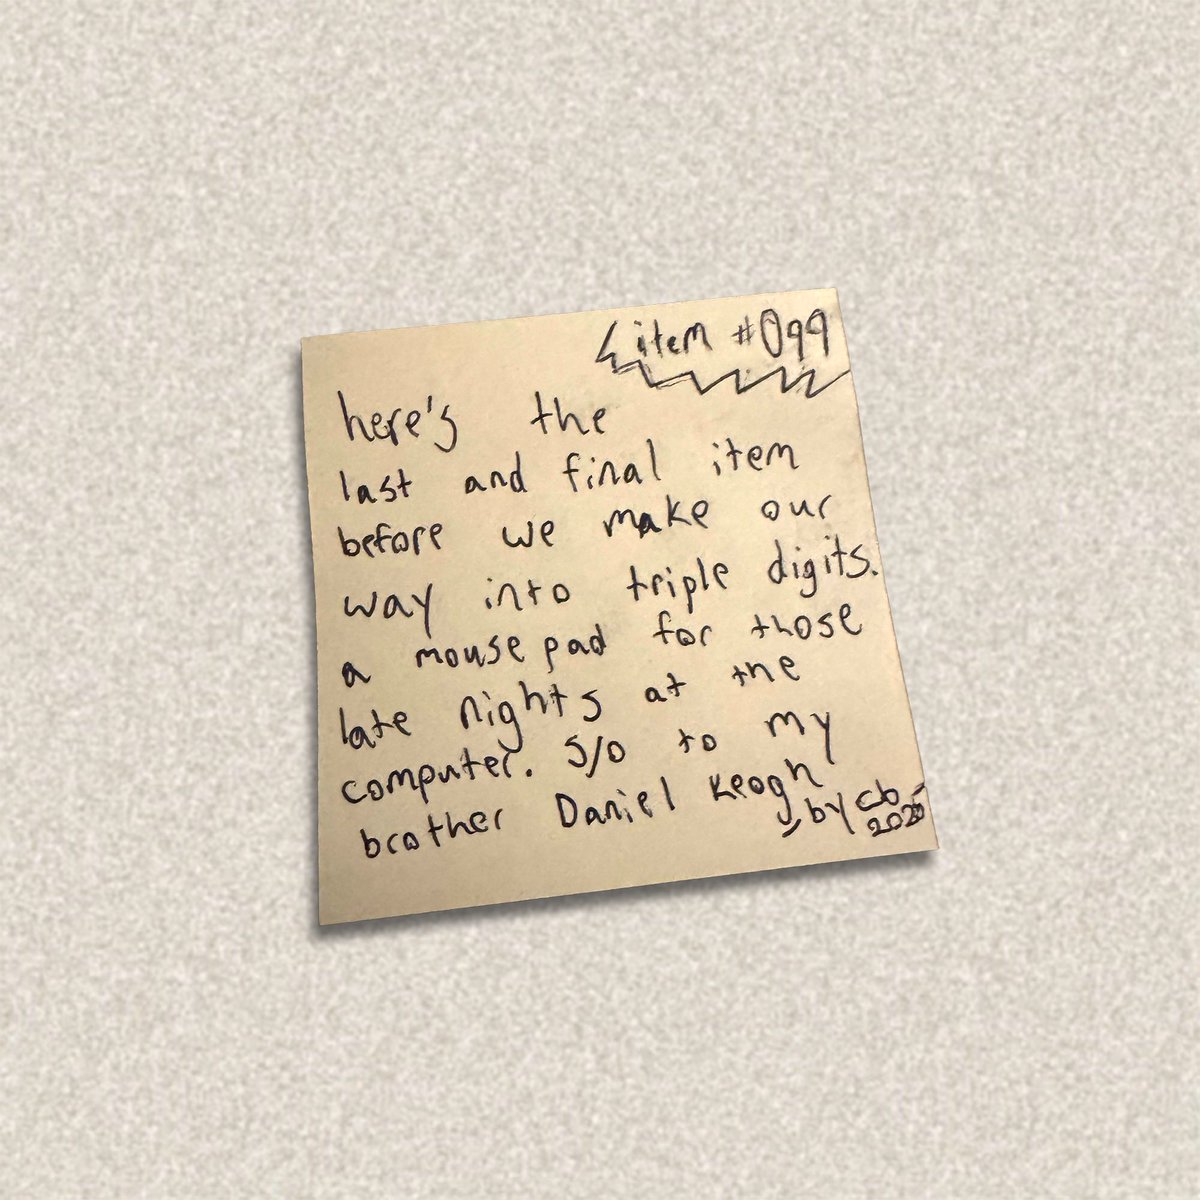 item #099
here's the
last and final item
before we make our
way into triple digits.
a mousepad for those
late nights at the
computer. S/O to my
brother Daniel Keogh
by cb